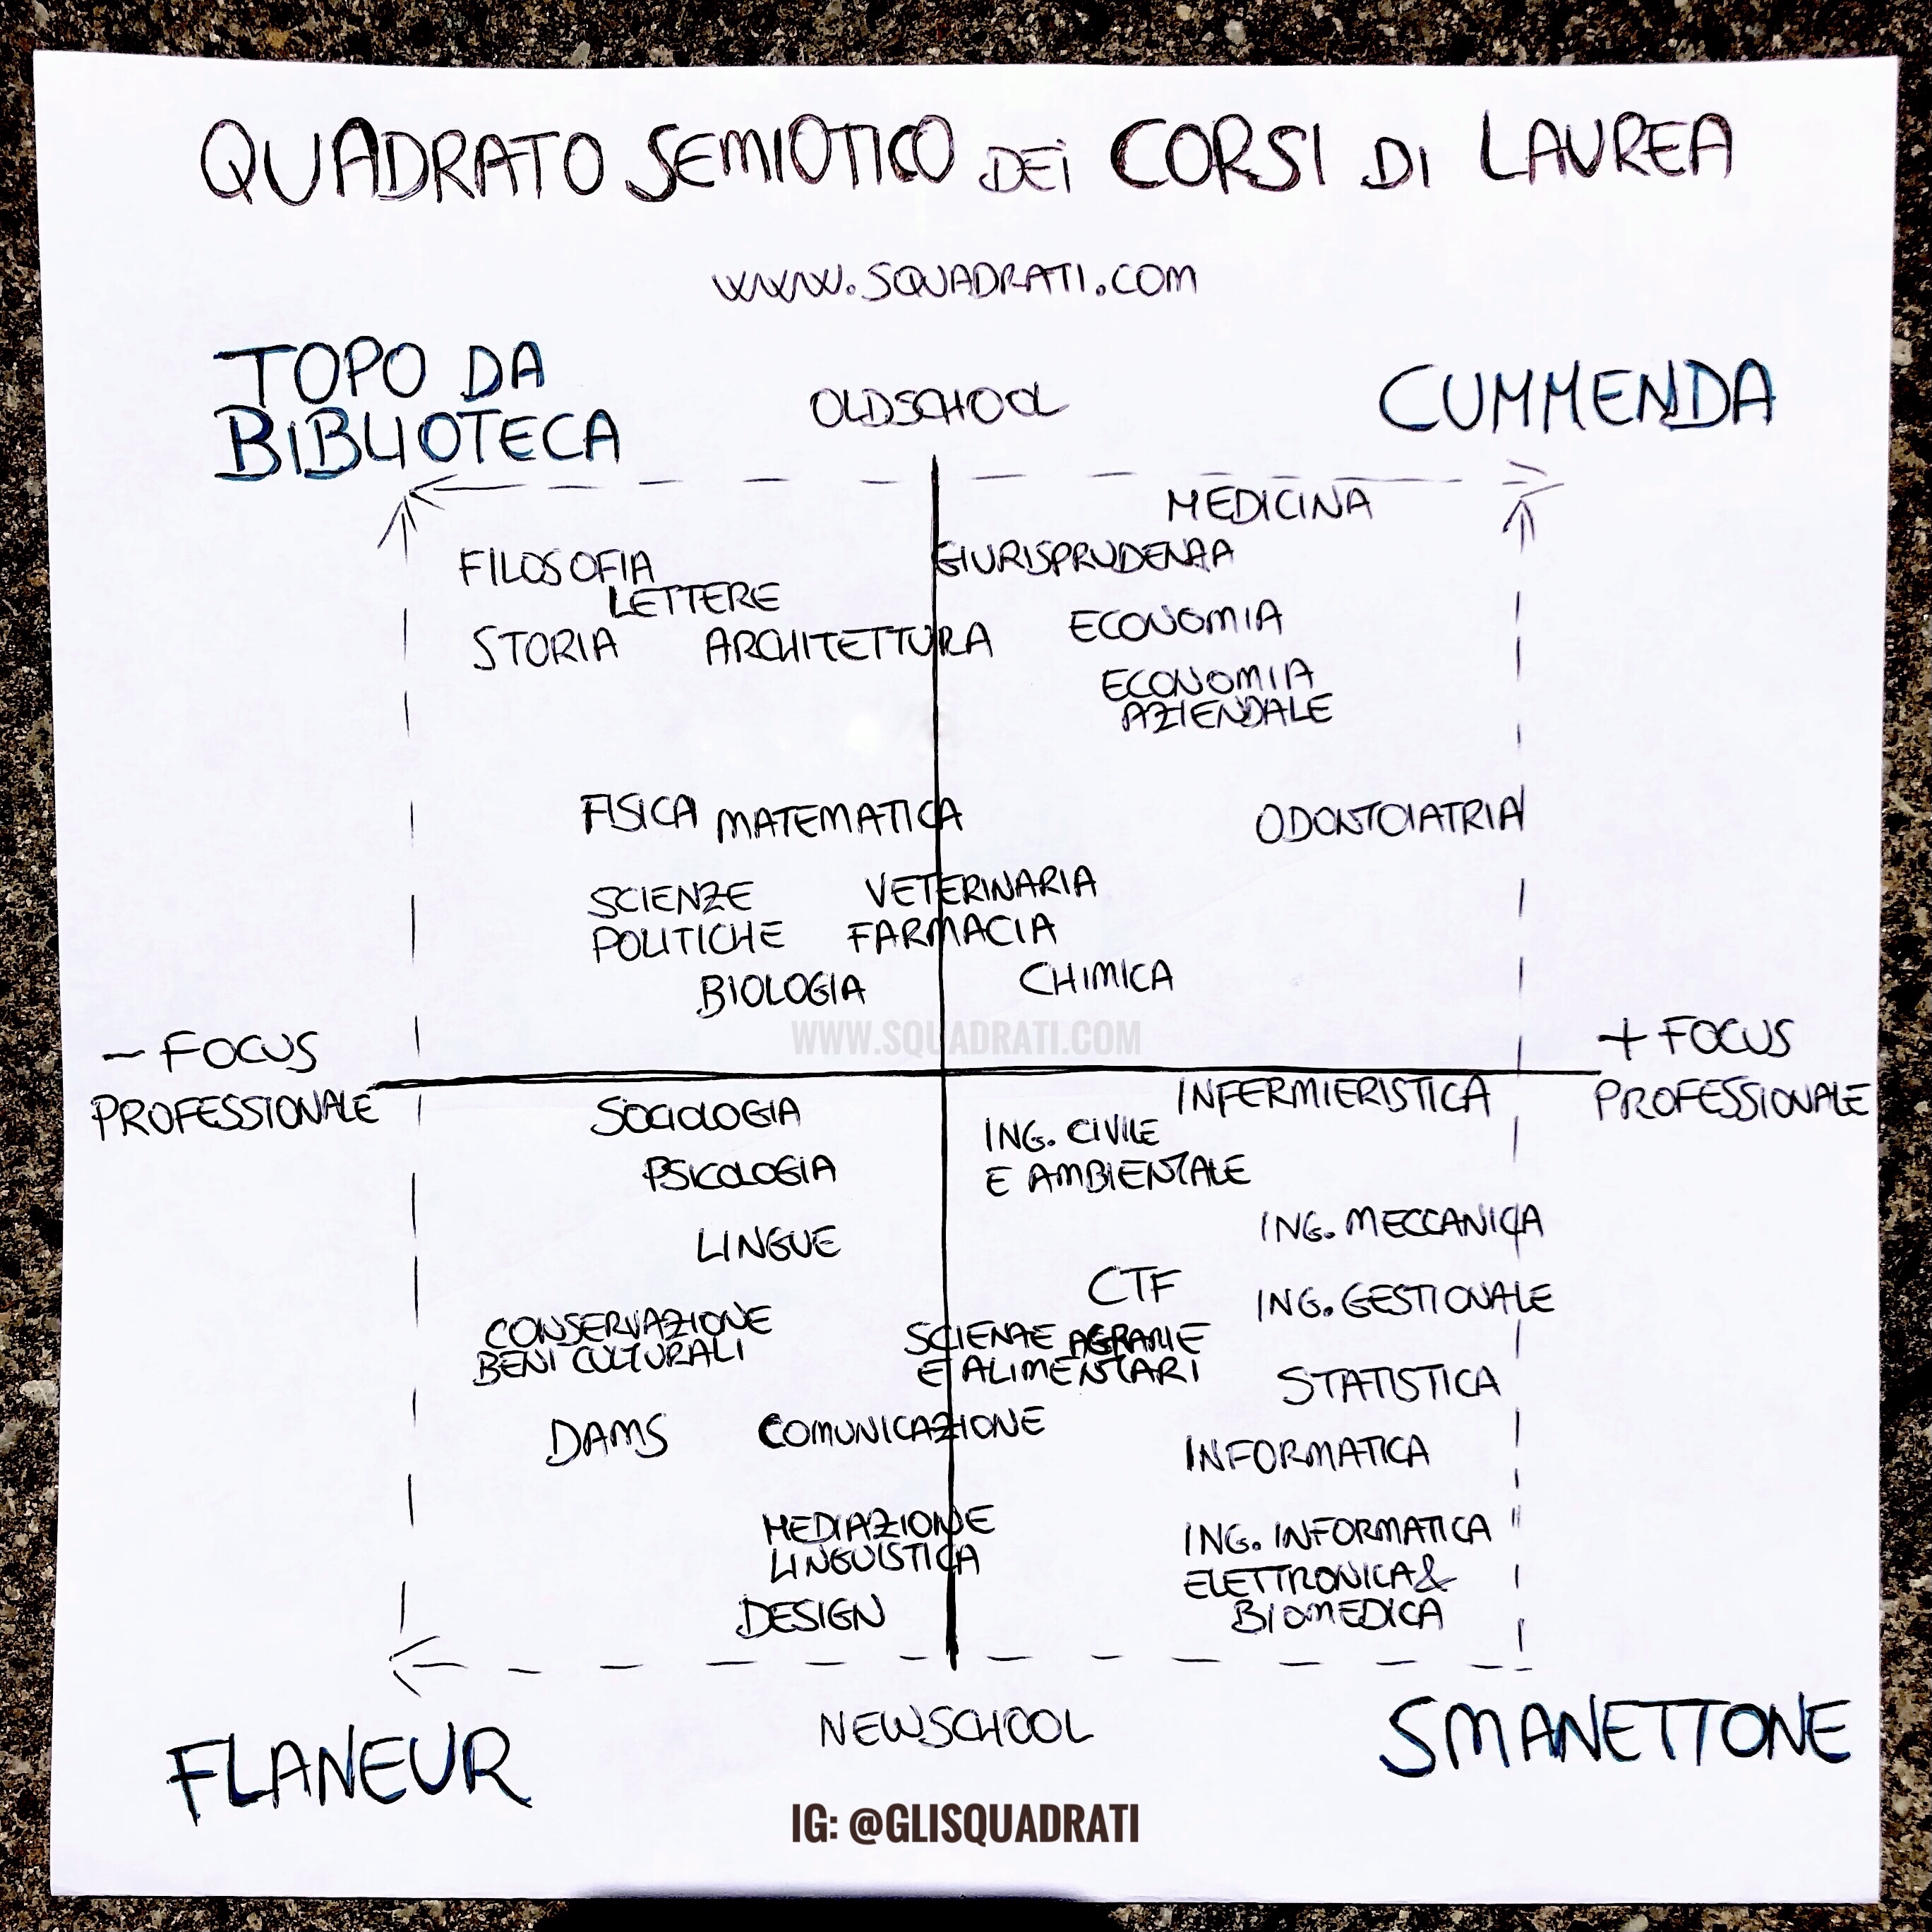 QUADRATO SEMIOTICO DEI CORSI DI LAUREA
WWW.SQUADRATI.COM
TOPO DA
BIBLIOTECA
OLDSCHOOL
CUMMENDA
MEDICINA
FILOSOFIA
GIURISPRUDENZA
LETTERE
ECONOMIA
STORIA
ARCHITETTURA
ECONOMIA
AZIENDALE
FISICA
MATEMATICA
ODONTOIATRIA
SCIENZE
POLITICHE
VETERINARIA
FARMACIA
BIOLOGIA
CHIMICA
WWW.SQUADRATI.COM
- FOCUS
PROFESSIONALE
+ FOCUS
PROFESSIONALE
SOCIOLOGIA
INFERMIERISTICA
ING. CIVILE
E AMBIENTALE
PSICOLOGIA
LINGUE
ING. MECCANICA
CTF
ING. GESTIONALE
CONSERVAZIONE
BENI CULTURALI
SCIENZE AGRARIE
E ALIMENTARI
STATISTICA
DAMS
COMUNICAZIONE
INFORMATICA
MEDIAZIONE
LINGUISTICA
ING. INFORMATICA
ELETTRONICA &
BIOMEDICA
DESIGN
FLANEUR
NEWSCHOOL
SMANETTONE
IG: @GLISQUADRATI